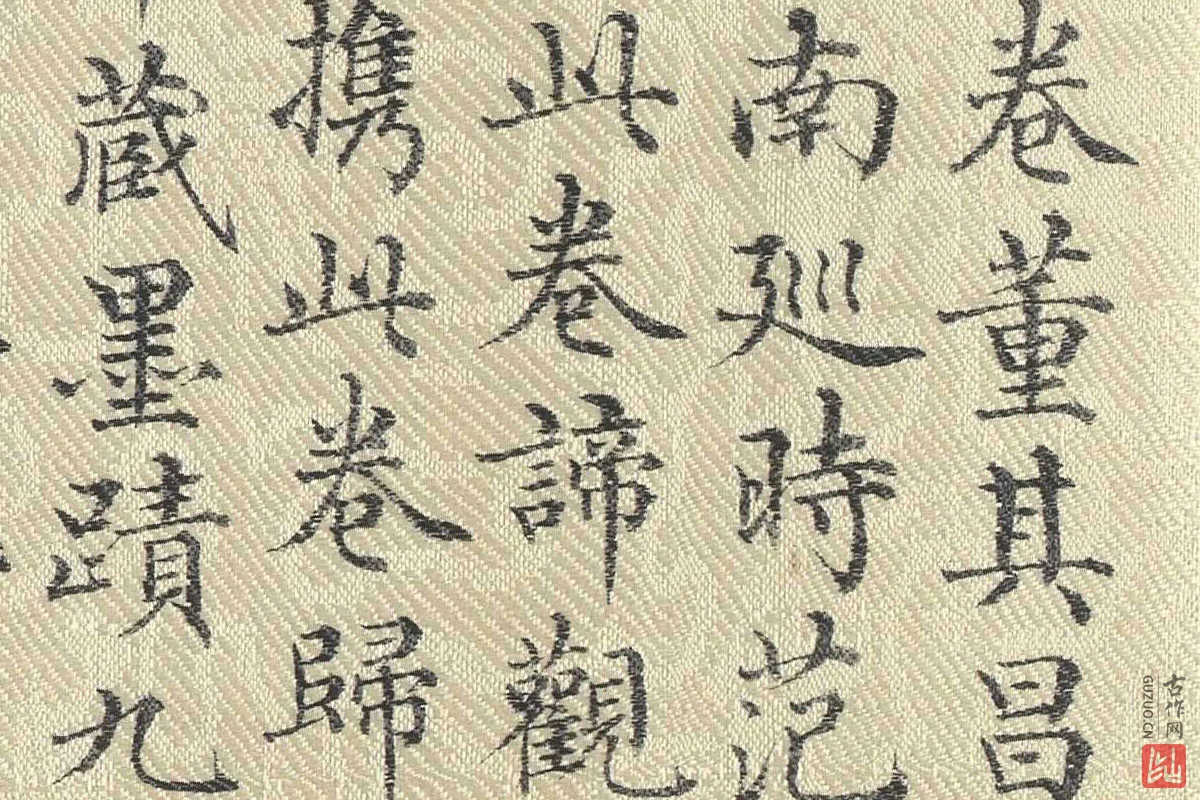 卷董其昌
南廵時范
此卷諦觀
携此卷歸
蔵墨蹟九
古作网
GUZUO.CN